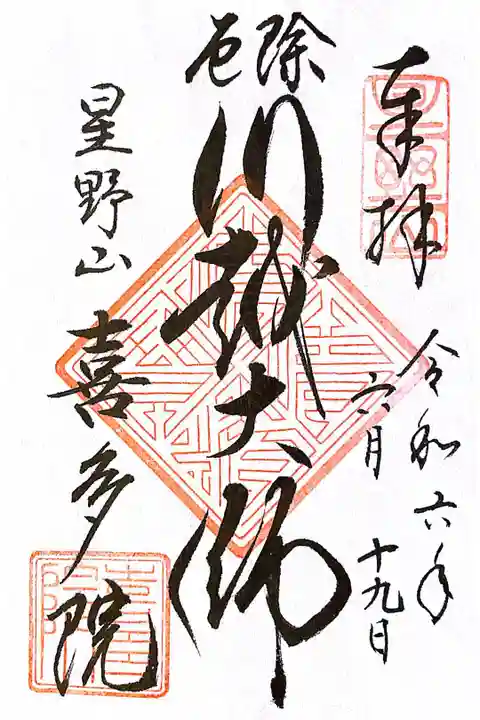 奉拝
令和六年
六月十九日
厄除
川越大師
星野山
喜多院